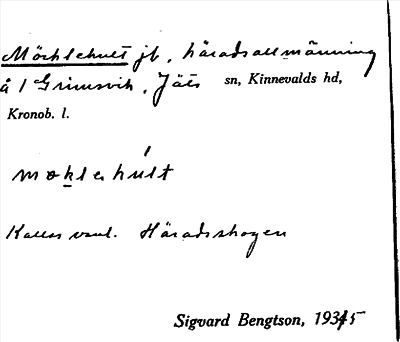 Möcklehult jb, häradsallmänning
å 1 Grimsvik, Jäts sn, Kinnevalds hd,
Kronob. l.
mokləhult
Kallas vanl. Häradsskogen
Sigvard Bengtson, 1935